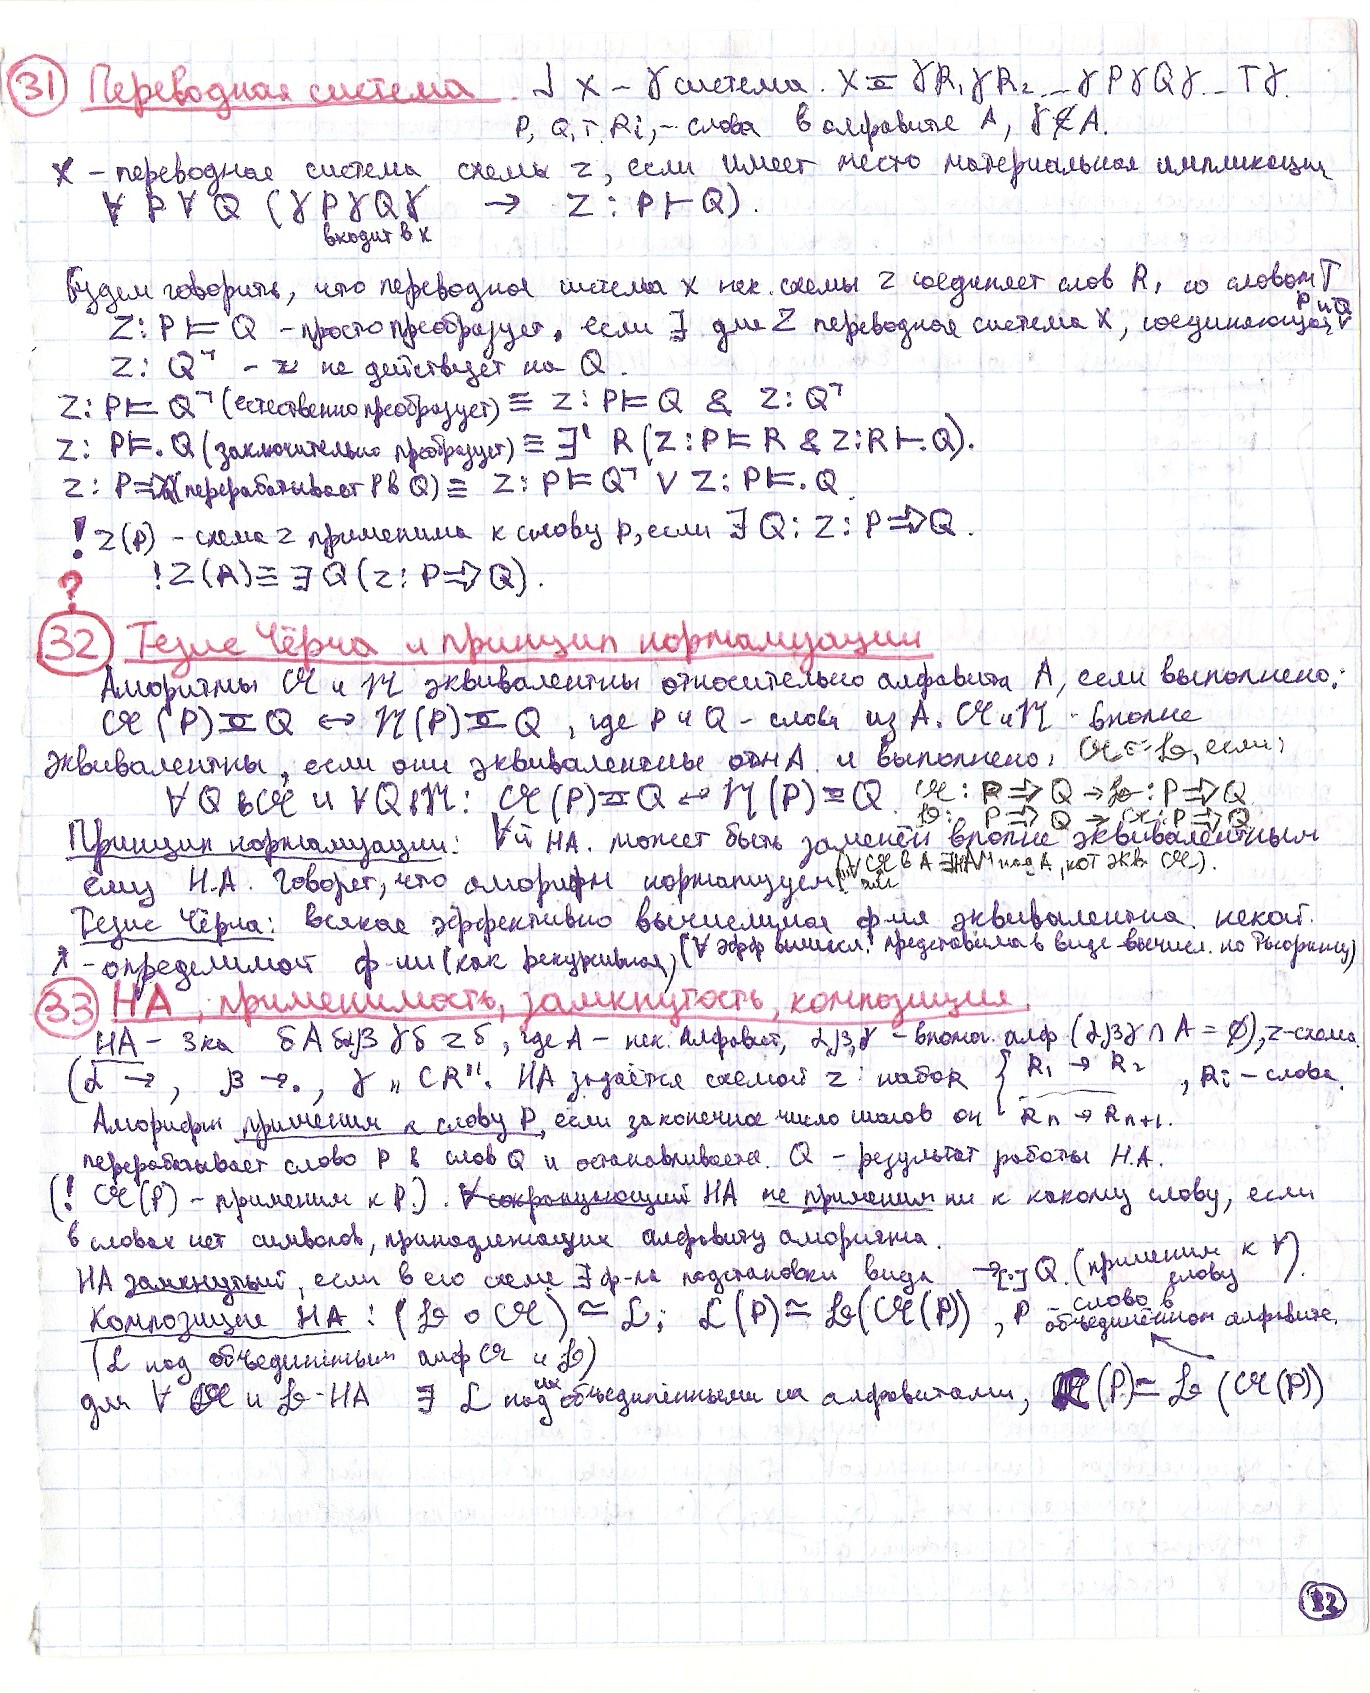 31 Переводная система. ⅃ X – γ система. X ≖ γR₁γR₂ ... γPγQγ ... Tγ.
P, Q, T, Ri, – слова в алфавите A, γ∉A.
X – переводная система схемы z, если имеет место материальная импликация
∀ P ∀ Q (γPγQγ → Z : P ⊢ Q).
входит в x
Будем говорить, что переводная система x нек. схемы z соединяет слов R₁ со словом T
Z : P ⊨ Q – просто преобразует, если ∃ для Z переводная система X, соединяющая P и Q
Z : Q ⌝ – z не действует на Q.
Z : P ⊨ Q⌝ (естественно преобразует) ≡ Z : P ⊨ Q & Z : Q⌝
Z : P ⊨. Q (заключительно преобразует) ≡ ∃' R (Z : P ⊨ R & Z : R ⊢. Q).
Z : P ⇒ Q (перерабатывает P в Q) ≡ Z : P ⊨ Q⌝ ∨ Z : P ⊨. Q.
! Z(P) – схема z применима к слову P, если ∃ Q : Z : P ⇒ Q.
! Z(A) ≡ ∃ Q (Z : P ⇒ Q).
?
32 Тезис Чёрча и принцип нормализации
Алгоритмы 𝔄 и 𝔑 эквивалентны относительно алфавита A, если выполнено:
𝔄 (P) ≖ Q ↔ 𝔑 (P) ≖ Q, где P и Q – слова из A. 𝔄 и 𝔑 – вполне
эквивалентны, если они эквивалентны отн A и выполнено:
∀ Q в 𝔄 и ∀ Q в 𝔑 : 𝔄 (P) ≖ Q ↔ 𝔑 (P) ≖ Q
если:
𝔄 : P ⇒ Q → 𝔅 : P ⇒ Q
𝔅 : P ⇒ Q → 𝔄 : P ⇒ Q
Принцип нормализации: ∀й НА. может быть заменён вполне эквивалентным
ему Н.А. Говорят, что алгорифм нормализуем
(∀ 𝔄 в A ∃ НА над A, кот экв. 𝔄).
Тезис Чёрча: всякая эффективно вычислимая ф-ия эквивалентна некот.
λ – определимой ф-ии (как рекурсивная) (∀ эфф вычисл. представима в виде вычисл. по Тьюрингу)
33 НА, применимость, замкнутость, композиция.
НА – 3ка δAδαβγδzδ, где A – нек. Алфавит, α,β,γ – вспомог. алф. (αβγ ∩ A = ∅), z – схема.
(α →, β →., γ „CR". НА задаётся схемой z : набор { R₁ → R₂ , Ri – слова.
Rn → Rn+1.
Алгорифм применим к слову P, если за конечное число шагов он
перерабатывает слово P в слов Q и останавливается. Q – результат работы Н.А.
(! 𝔄(P) – применим к P.). НА не применим ни к какому слову, если
в словах нет символов, принадлежащих алфавиту алгоритма.
НА замкнутый, если в его схеме ∃ ф-ла подстановки вида →[·] Q. (применим к ∀ слову).
Композиция НА : (𝔅 ∘ 𝔄) ≃ ℒ; ℒ(P) ≃ 𝔅(𝔄(P)), P – слово в объединённом алфавите.
(ℒ над объединённым алф 𝔄 и 𝔅)
для ∀ 𝔄 и 𝔅 – НА ∃ ℒ над объединёнными их алфавитами, (P) ≃ 𝔅 (𝔄(P))